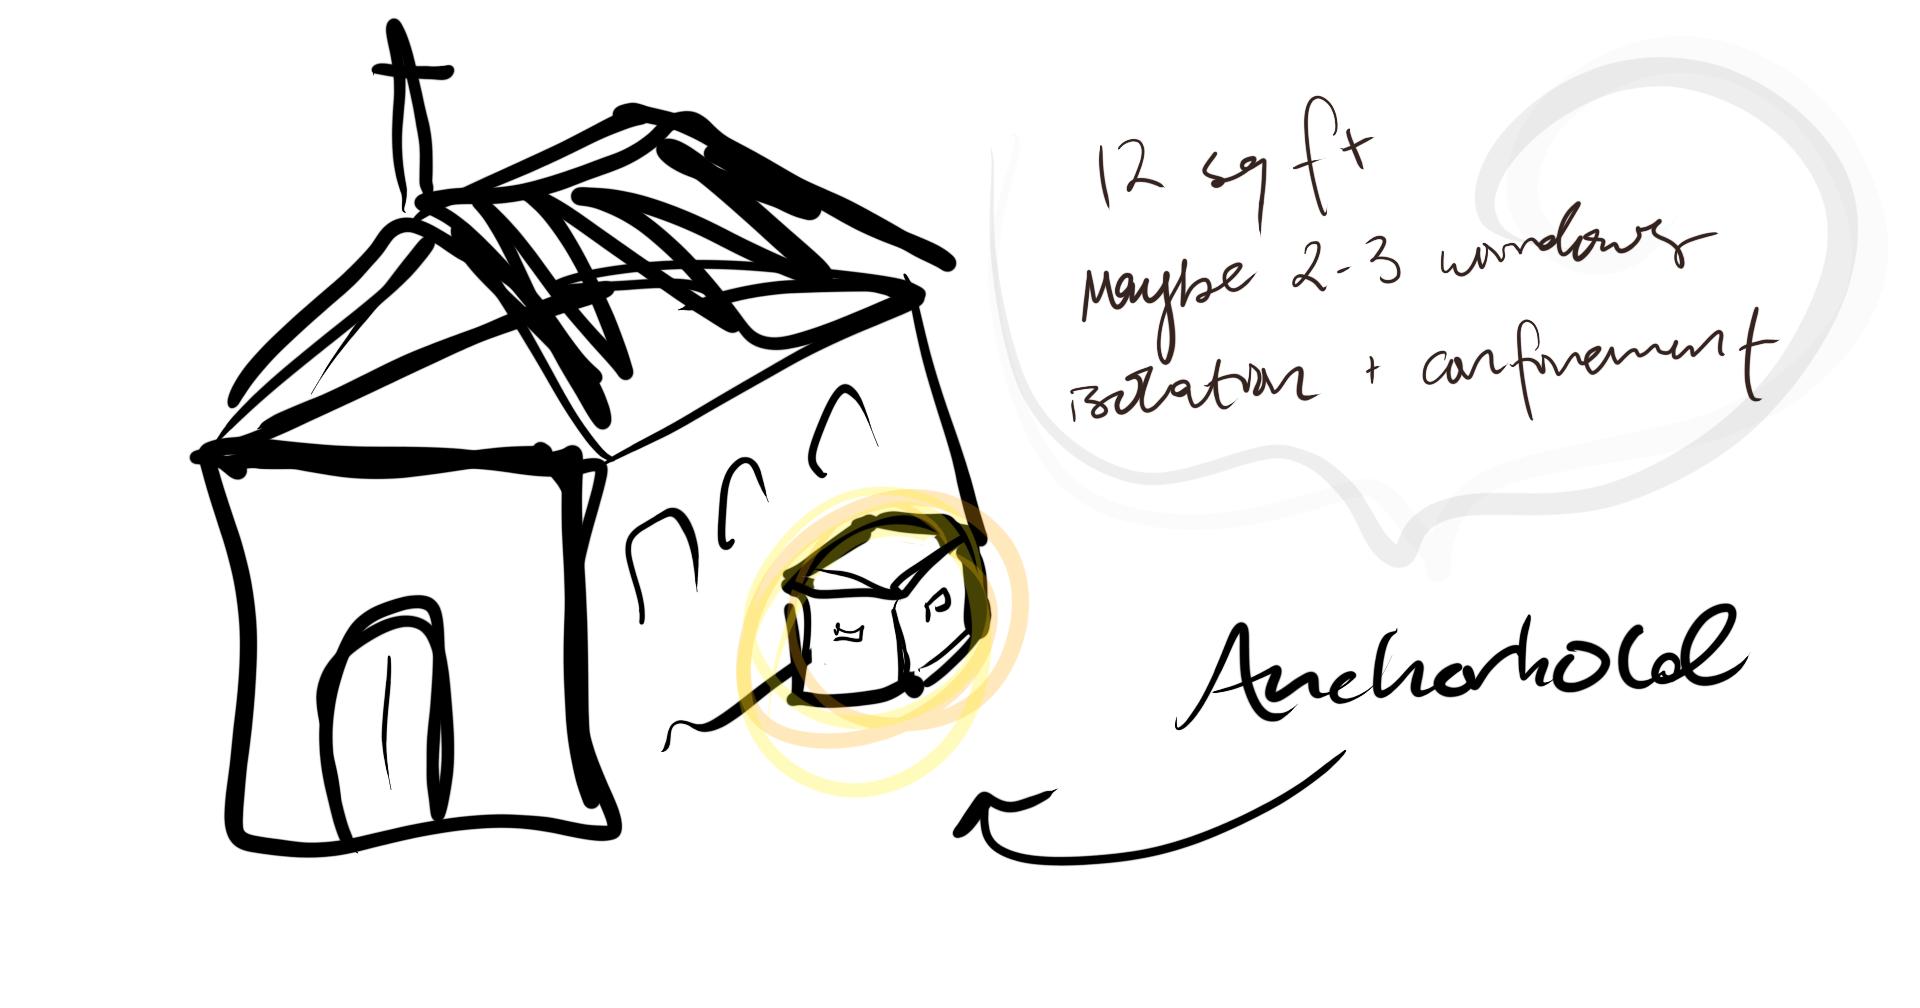 12 sq ft
Maybe 2-3 windows
isolation + confinement
Anchorhold